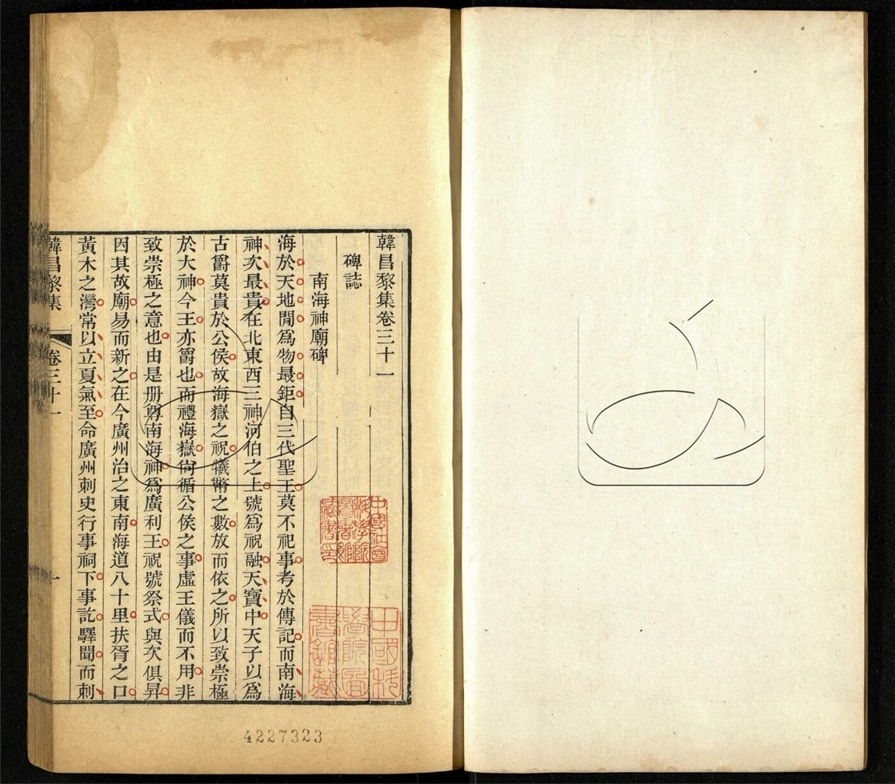 韓昌黎集卷三十一
碑誌
南海神廟碑
海於天地閒爲物最鉅自三代聖王莫不祀事考於傳記而南海
神次最貴在北東西三神河伯之上號爲祝融天寶中天子以爲
古爵莫貴於公侯故海嶽之祝犧幣之數放而依之所以致崇極
於大神今王亦爵也而禮海嶽尙循公侯之事虛王儀而不用非
致崇極之意也由是册尊南海神爲廣利王祝號祭式與次俱昇
因其故廟易而新之在今廣州治之東南海道八十里扶胥之口
黃木之灣常以立夏氣至命廣州刺史行事祠下事訖驛聞而刺
韓昌黎集 卷三十一 一
4227323